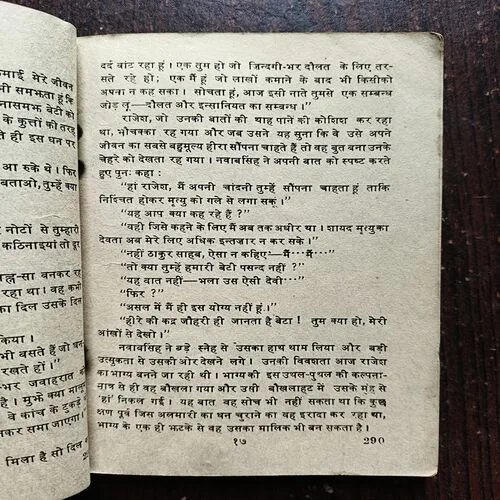 कमाई मेरे जीवन
नी समझता हूं कि
नासमझ बेटी को
के कुत्तों की तरह
ते ही इस धन पर
आ रुके थे। फिर
बताओ, तुम्हें क्या
नोटों से तुम्हारी
कठिनाइयां तो दूर
-सा बनकर रह
रहा था। वह कभी
का दिल उसके दिल
किया।
भी बसते हैं जो धन
रखते हों।"
-भर जवाहरात
मुझे क्या मालूम
वे कांच के टुकड़े
नकर समा जाएगा।
मिला है सो दिल
दर्द बांट रहा हूं। एक तुम हो जो जिन्दगी-भर दौलत के लिए तर-
सते रहे हो; एक मैं हूं जो लाखों कमाने के बाद भी किसीको
अपना न कह सका। सोचता हूं, आज इसी नाते तुमसे एक सम्बन्ध
जोड़ लूं—दौलत और इन्सानियत का सम्बन्ध।"
राजेश, जो उनकी बातों की थाह पाने की कोशिश कर रहा
था, भौचक्का रह गया और जब उसने यह सुना कि वे उसे अपने
जीवन का सबसे बहुमूल्य हीरा सौंपना चाहते हैं तो वह बुत बना उनके
चेहरे को देखता रह गया। नवाबसिंह ने अपनी बात को स्पष्ट करते
हुए पुनः कहा :
"हां राजेश, मैं अपनी चांदनी तुम्हें सौंपना चाहता हूं ताकि
निश्चित होकर मृत्यु को गले से लगा सकूं।"
"यह आप क्या कह रहे हैं ?"
"वही जिसे कहने के लिए मैं अब तक अधीर था। शायद मृत्यु का
देवता अब मेरे लिए अधिक इन्तजार न कर सके।"
"नहीं ठाकुर साहब, ऐसा न कहिए—मैं···मैं···"
"तो क्या तुम्हें हमारी बेटी पसन्द नहीं ?"
"यह बात नहीं—भला उस ऐसी देवी···"
"फिर ?"
"असल में मैं ही इस योग्य नहीं हूं।"
"हीरे की कद्र जौहरी ही जानता है बेटा ! तुम क्या हो, मेरी
आंखों से देखो।"
नवाबसिंह ने बड़े स्नेह से उसका हाथ थाम लिया और बड़ी
उत्सुकता से उसकी ओर देखने लगे। उनकी विवशता आज राजेश
का भाग्य बनने जा रही थी। भाग्य की इस उथल-पुथल की कल्पना-
मात्र से ही वह बौखला गया और उसी बौखलाहट में उसके मुंह से
'हां' निकल गई। यह बात वह सोच भी नहीं सकता था कि कुछ
क्षण पूर्व जिस अलमारी का धन चुराने का वह इरादा कर रहा था,
भाग्य के एक ही झटके से वह उसका मालिक भी बन सकता है।
१७
290